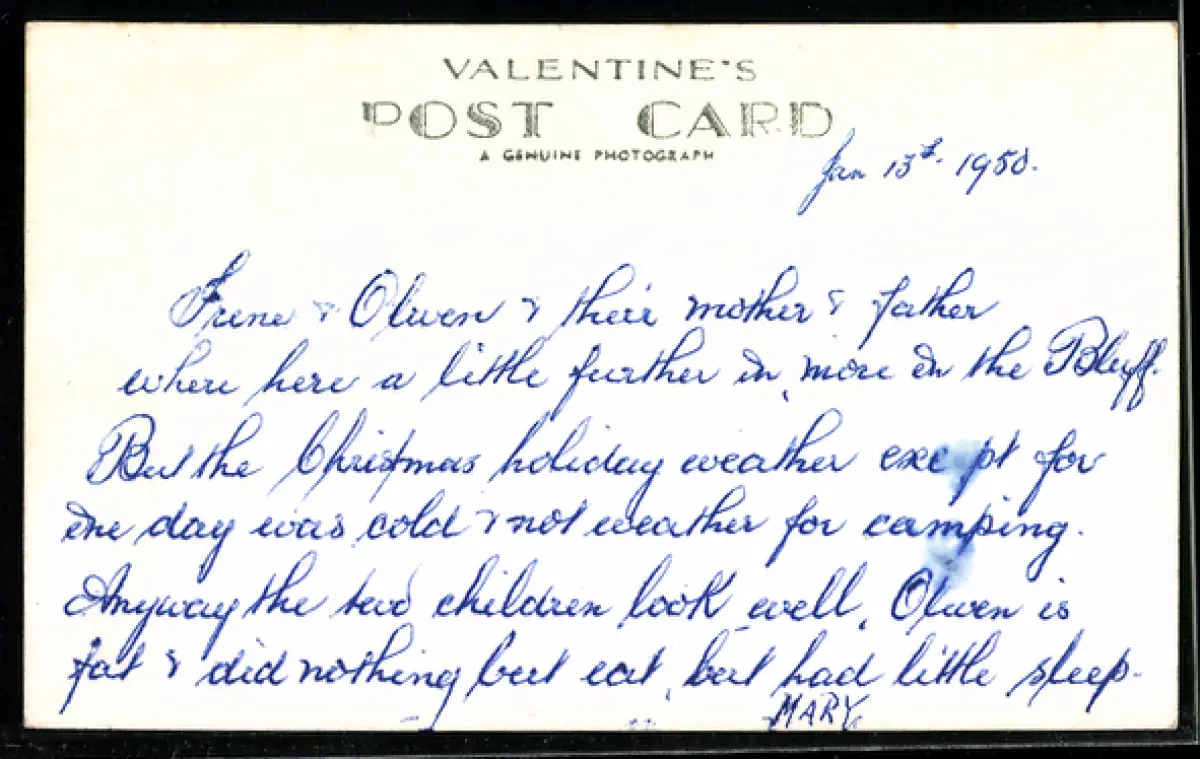 VALENTINE'S
POST CARD
A GENUINE PHOTOGRAPH
Jan 13th. 1950.
Irene & Olwen & their mother & father
where here a little further in, more in the Bluff.
But the Christmas holiday weather except for
one day was cold & not weather for camping.
Anyway the two children look well, Olwen is
fat & did nothing but eat, but had little sleep.
MARY